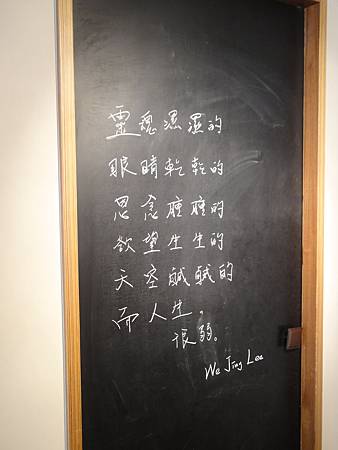 靈魂濕濕的
眼睛乾乾的
思念腫腫的
慾望生生的
天空鹹鹹的
而人生。
很弱。
We Jing Lee